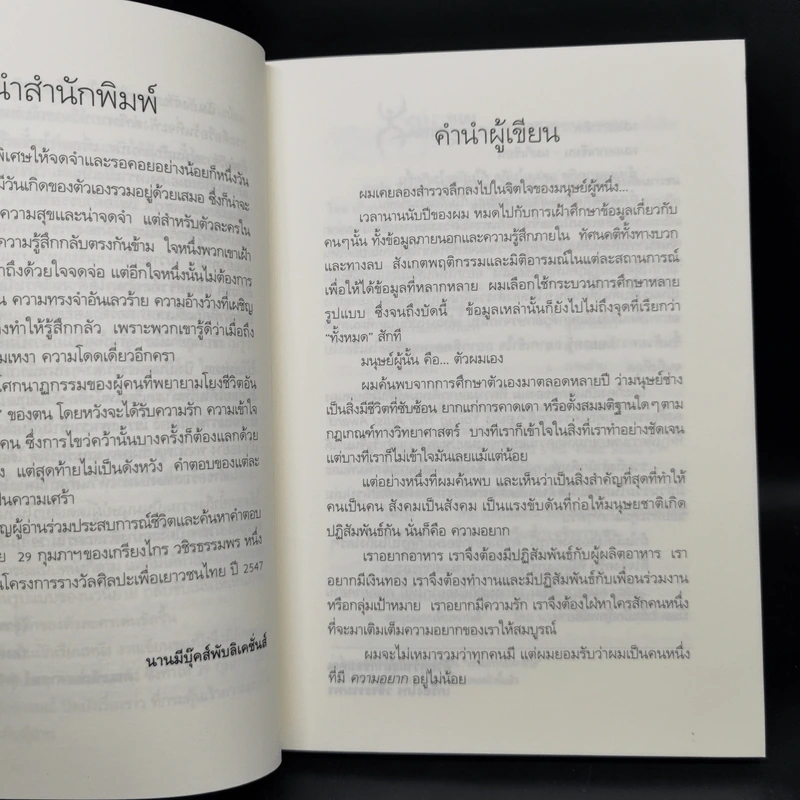 นำสำนักพิมพ์
พิเศษให้จดจำและรอคอยอย่างน้อยก็หนึ่งวัน
มีวันเกิดของตัวเองรวมอยู่ด้วยเสมอ ซึ่งก็น่าจะ
ความสุขและน่าจดจำ แต่สำหรับตัวละครใน
ความรู้สึกกลับตรงกันข้าม ใจหนึ่งพวกเขาเฝ้า
าถึงด้วยใจจดจ่อ แต่อีกใจหนึ่งนั้นไม่ต้องการ
น ความทรงจำอันเลวร้าย ความอ้างว้างที่เผชิญ
งทำให้รู้สึกกลัว เพราะพวกเขารู้ดีว่าเมื่อถึง
มเหงา ความโดดเดี่ยวอีกครา
โศกนาฏกรรมของผู้คนที่พยายามโยงชีวิตอัน
" ของตน โดยหวังจะได้รับความรัก ความเข้าใจ
คน ซึ่งการไขว่คว้านั้นบางครั้งก็ต้องแลกด้วย
ง แต่สุดท้ายไม่เป็นดังหวัง คำตอบของแต่ละ
ป็นความเศร้า
ญผู้อ่านร่วมประสบการณ์ชีวิตและค้นหาคำตอบ
ย 29 กุมภาฯของเกรียงไกร วชิรธรรมพร หนึ่ง
นโครงการรางวัลศิลปะเพื่อเยาวชนไทย ปี 2547
นานมีบุ๊คส์พับลิเคชั่นส์
คำนำผู้เขียน
ผมเคยลองสำรวจลึกลงไปในจิตใจของมนุษย์ผู้หนึ่ง...
เวลานานนับปีของผม หมดไปกับการเฝ้าศึกษาข้อมูลเกี่ยวกับ
คนๆนั้น ทั้งข้อมูลภายนอกและความรู้สึกภายใน ทัศนคติทั้งทางบวก
และทางลบ สังเกตพฤติกรรมและมิติอารมณ์ในแต่ละสถานการณ์
เพื่อให้ได้ข้อมูลที่หลากหลาย ผมเลือกใช้กระบวนการศึกษาหลาย
รูปแบบ ซึ่งจนถึงบัดนี้ ข้อมูลเหล่านั้นก็ยังไปไม่ถึงจุดที่เรียกว่า
"ทั้งหมด" สักที
มนุษย์ผู้นั้น คือ... ตัวผมเอง
ผมค้นพบจากการศึกษาตัวเองมาตลอดหลายปี ว่ามนุษย์ช่าง
เป็นสิ่งมีชีวิตที่ซับซ้อน ยากแก่การคาดเดา หรือตั้งสมมติฐานใดๆตาม
กฎเกณฑ์ทางวิทยาศาสตร์ บางทีเราก็เข้าใจในสิ่งที่เราทำอย่างชัดเจน
แต่บางทีเราก็ไม่เข้าใจมันเลยแม้แต่น้อย
แต่อย่างหนึ่งที่ผมค้นพบ และเห็นว่าเป็นสิ่งสำคัญที่สุดที่ทำให้
คนเป็นคน สังคมเป็นสังคม เป็นแรงขับดันที่ก่อให้มนุษยชาติเกิด
ปฏิสัมพันธ์กัน นั่นก็คือ ความอยาก
เราอยากอาหาร เราจึงต้องมีปฏิสัมพันธ์กับผู้ผลิตอาหาร เรา
อยากมีเงินทอง เราจึงต้องทำงานและมีปฏิสัมพันธ์กับเพื่อนร่วมงาน
หรือกลุ่มเป้าหมาย เราอยากมีความรัก เราจึงต้องใฝ่หาใครสักคนหนึ่ง
ที่จะมาเติมเต็มความอยากของเราให้สมบูรณ์
ผมจะไม่เหมารวมว่าทุกคนมี แต่ผมยอมรับว่าผมเป็นคนหนึ่ง
ที่มี ความอยาก อยู่ไม่น้อย